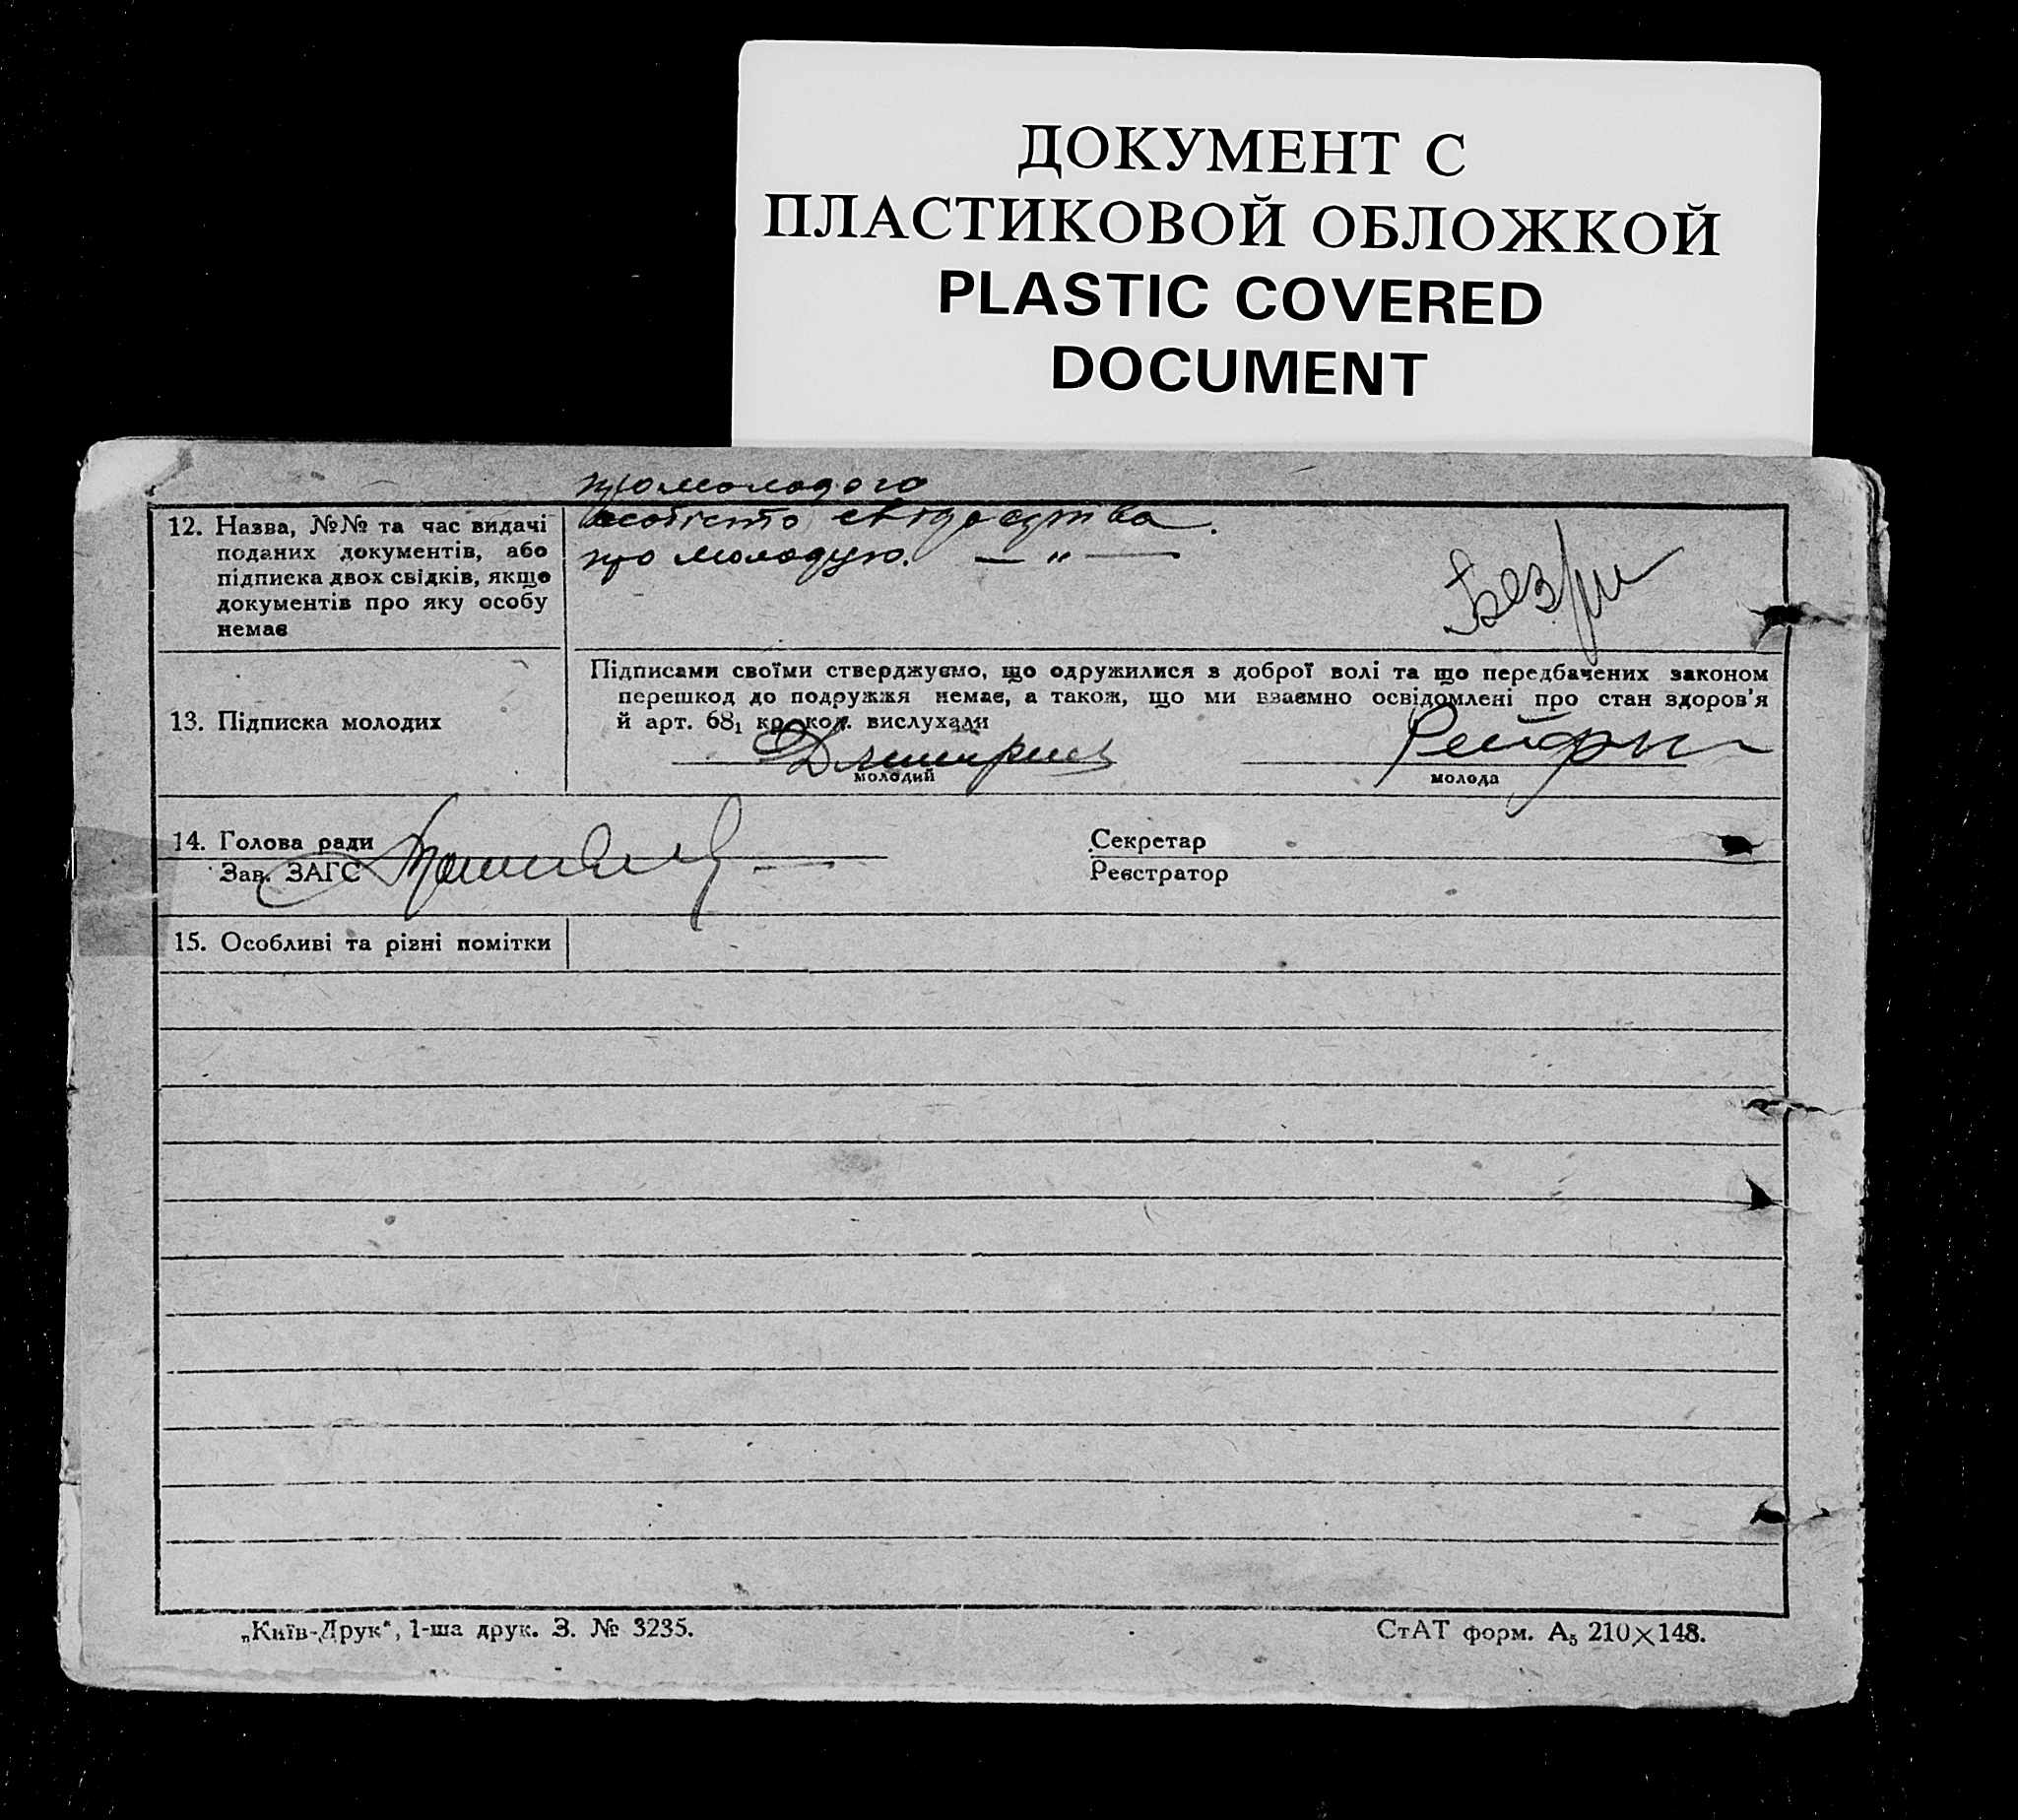 ДОКУМЕНТ С
ПЛАСТИКОВОЙ ОБЛОЖКОЙ
PLASTIC COVERED
DOCUMENT
про молодого
12. Назва, №№ та час видачі
поданих документів, або
підписка двох свідків, якщо
документів про яку особу
немає
особісто свідоцтва.
про молодую. — „ —
Підписами своїми стверджуємо, що одружилися з доброї волі та що передбачених законом
перешкод до подружжя немає, а також, що ми взаємно освідомлені про стан здоров'я
й арт. 68₁ кр. код. вислухали
13. Підписка молодих
молодий
молода
14. Голова ради
Зав. ЗАГС
Секретар
Реєстратор
15. Особливі та різні помітки
„Київ-Друк“, 1-ша друк. З. № 3235.
СтАТ форм. А₅ 210×148.